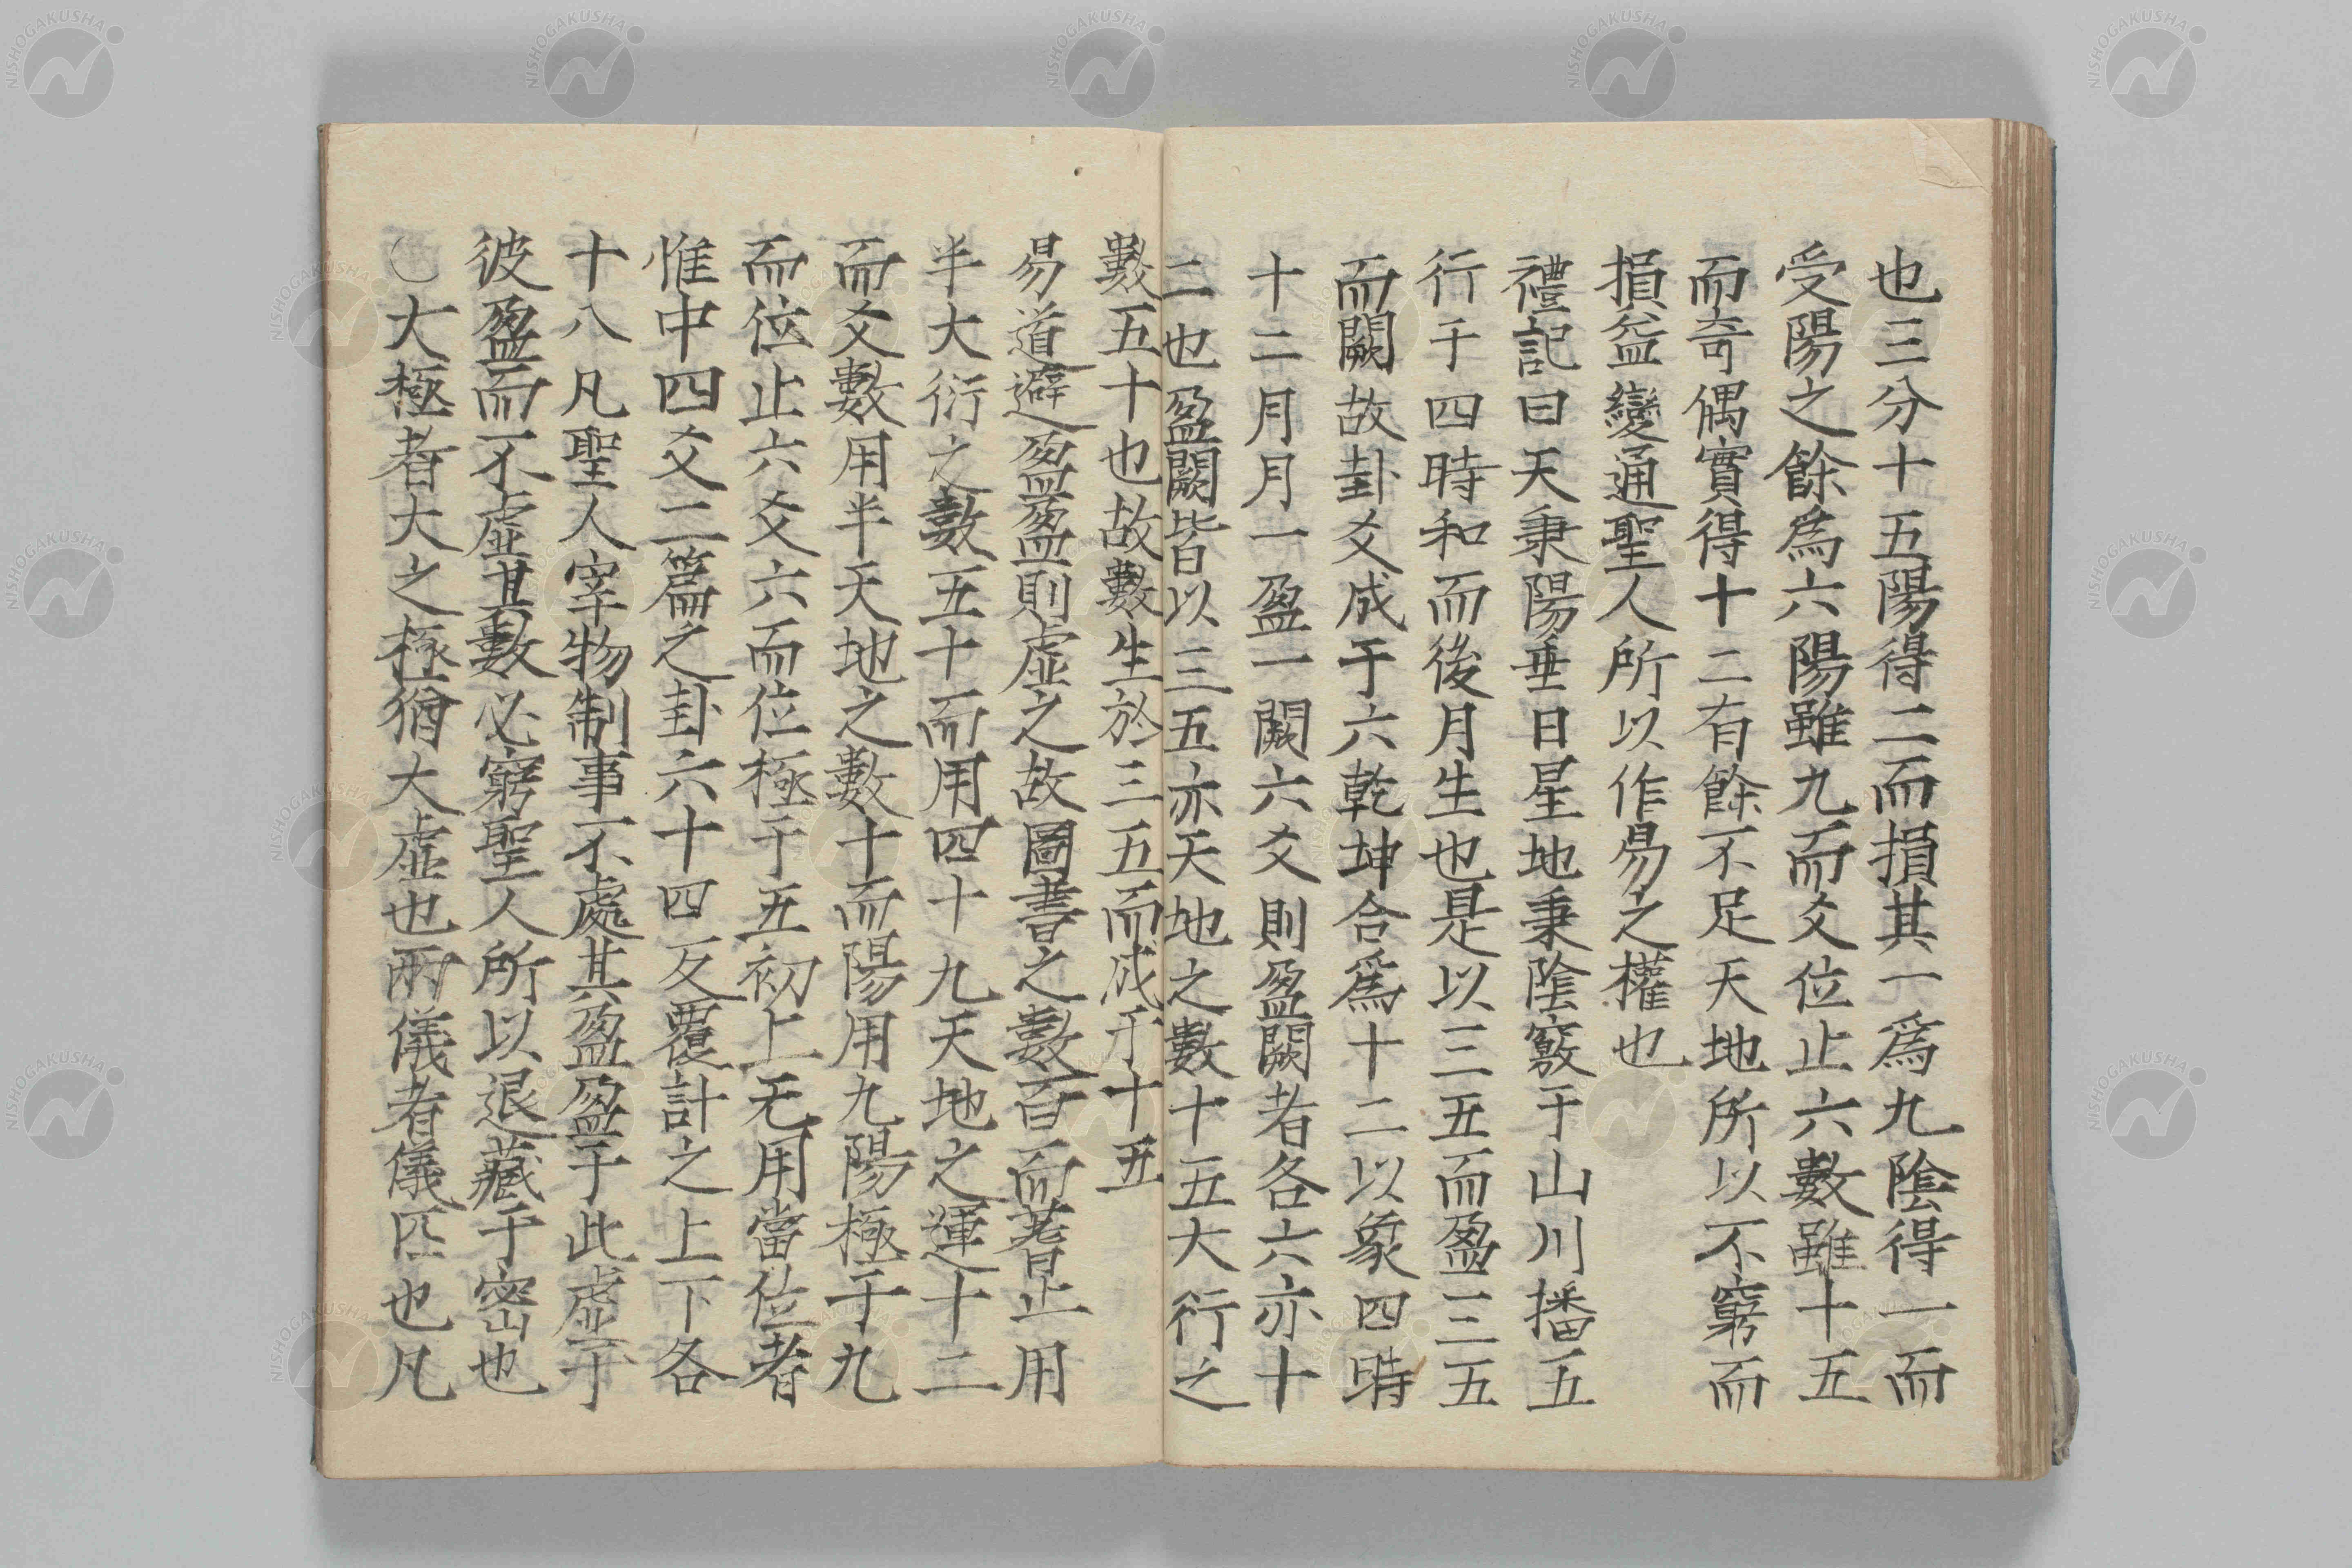 也三分十五陽得二而損其一爲九陰得一而
受陽之餘爲六陽雖九而爻位止六數雖十五
而奇偶實得十二有餘不足天地所以不窮而
損益變通聖人所以作易之權也
禮記曰天秉陽垂日星地秉陰竅于山川播五
行于四時和而後月生也是以三五而盈三五
而闕故卦爻成于六乾坤合爲十二以象四時
十二月月一盈一闕六爻則盈闕者各六亦十
二也盈闕皆以三五亦天地之數十五大衍之
數五十也故數生於三五而成于十五
易道避盈盈則虛之故圖書之數百而蓍止用
半大衍之數五十而用四十九天地之運十二
而爻數用半天地之數十而陽用九陽極于九
而位止六爻六而位極于五初上无用當位者
惟中四爻二篇之卦六十四反覆計之上下各
十八凡聖人宰物制事不處其盈盈于此虛于
彼盈而不虛其數必窮聖人所以退藏于密也
大極者大之極猶大虛也兩儀者儀匹也凡
NISHOGAKUSHA